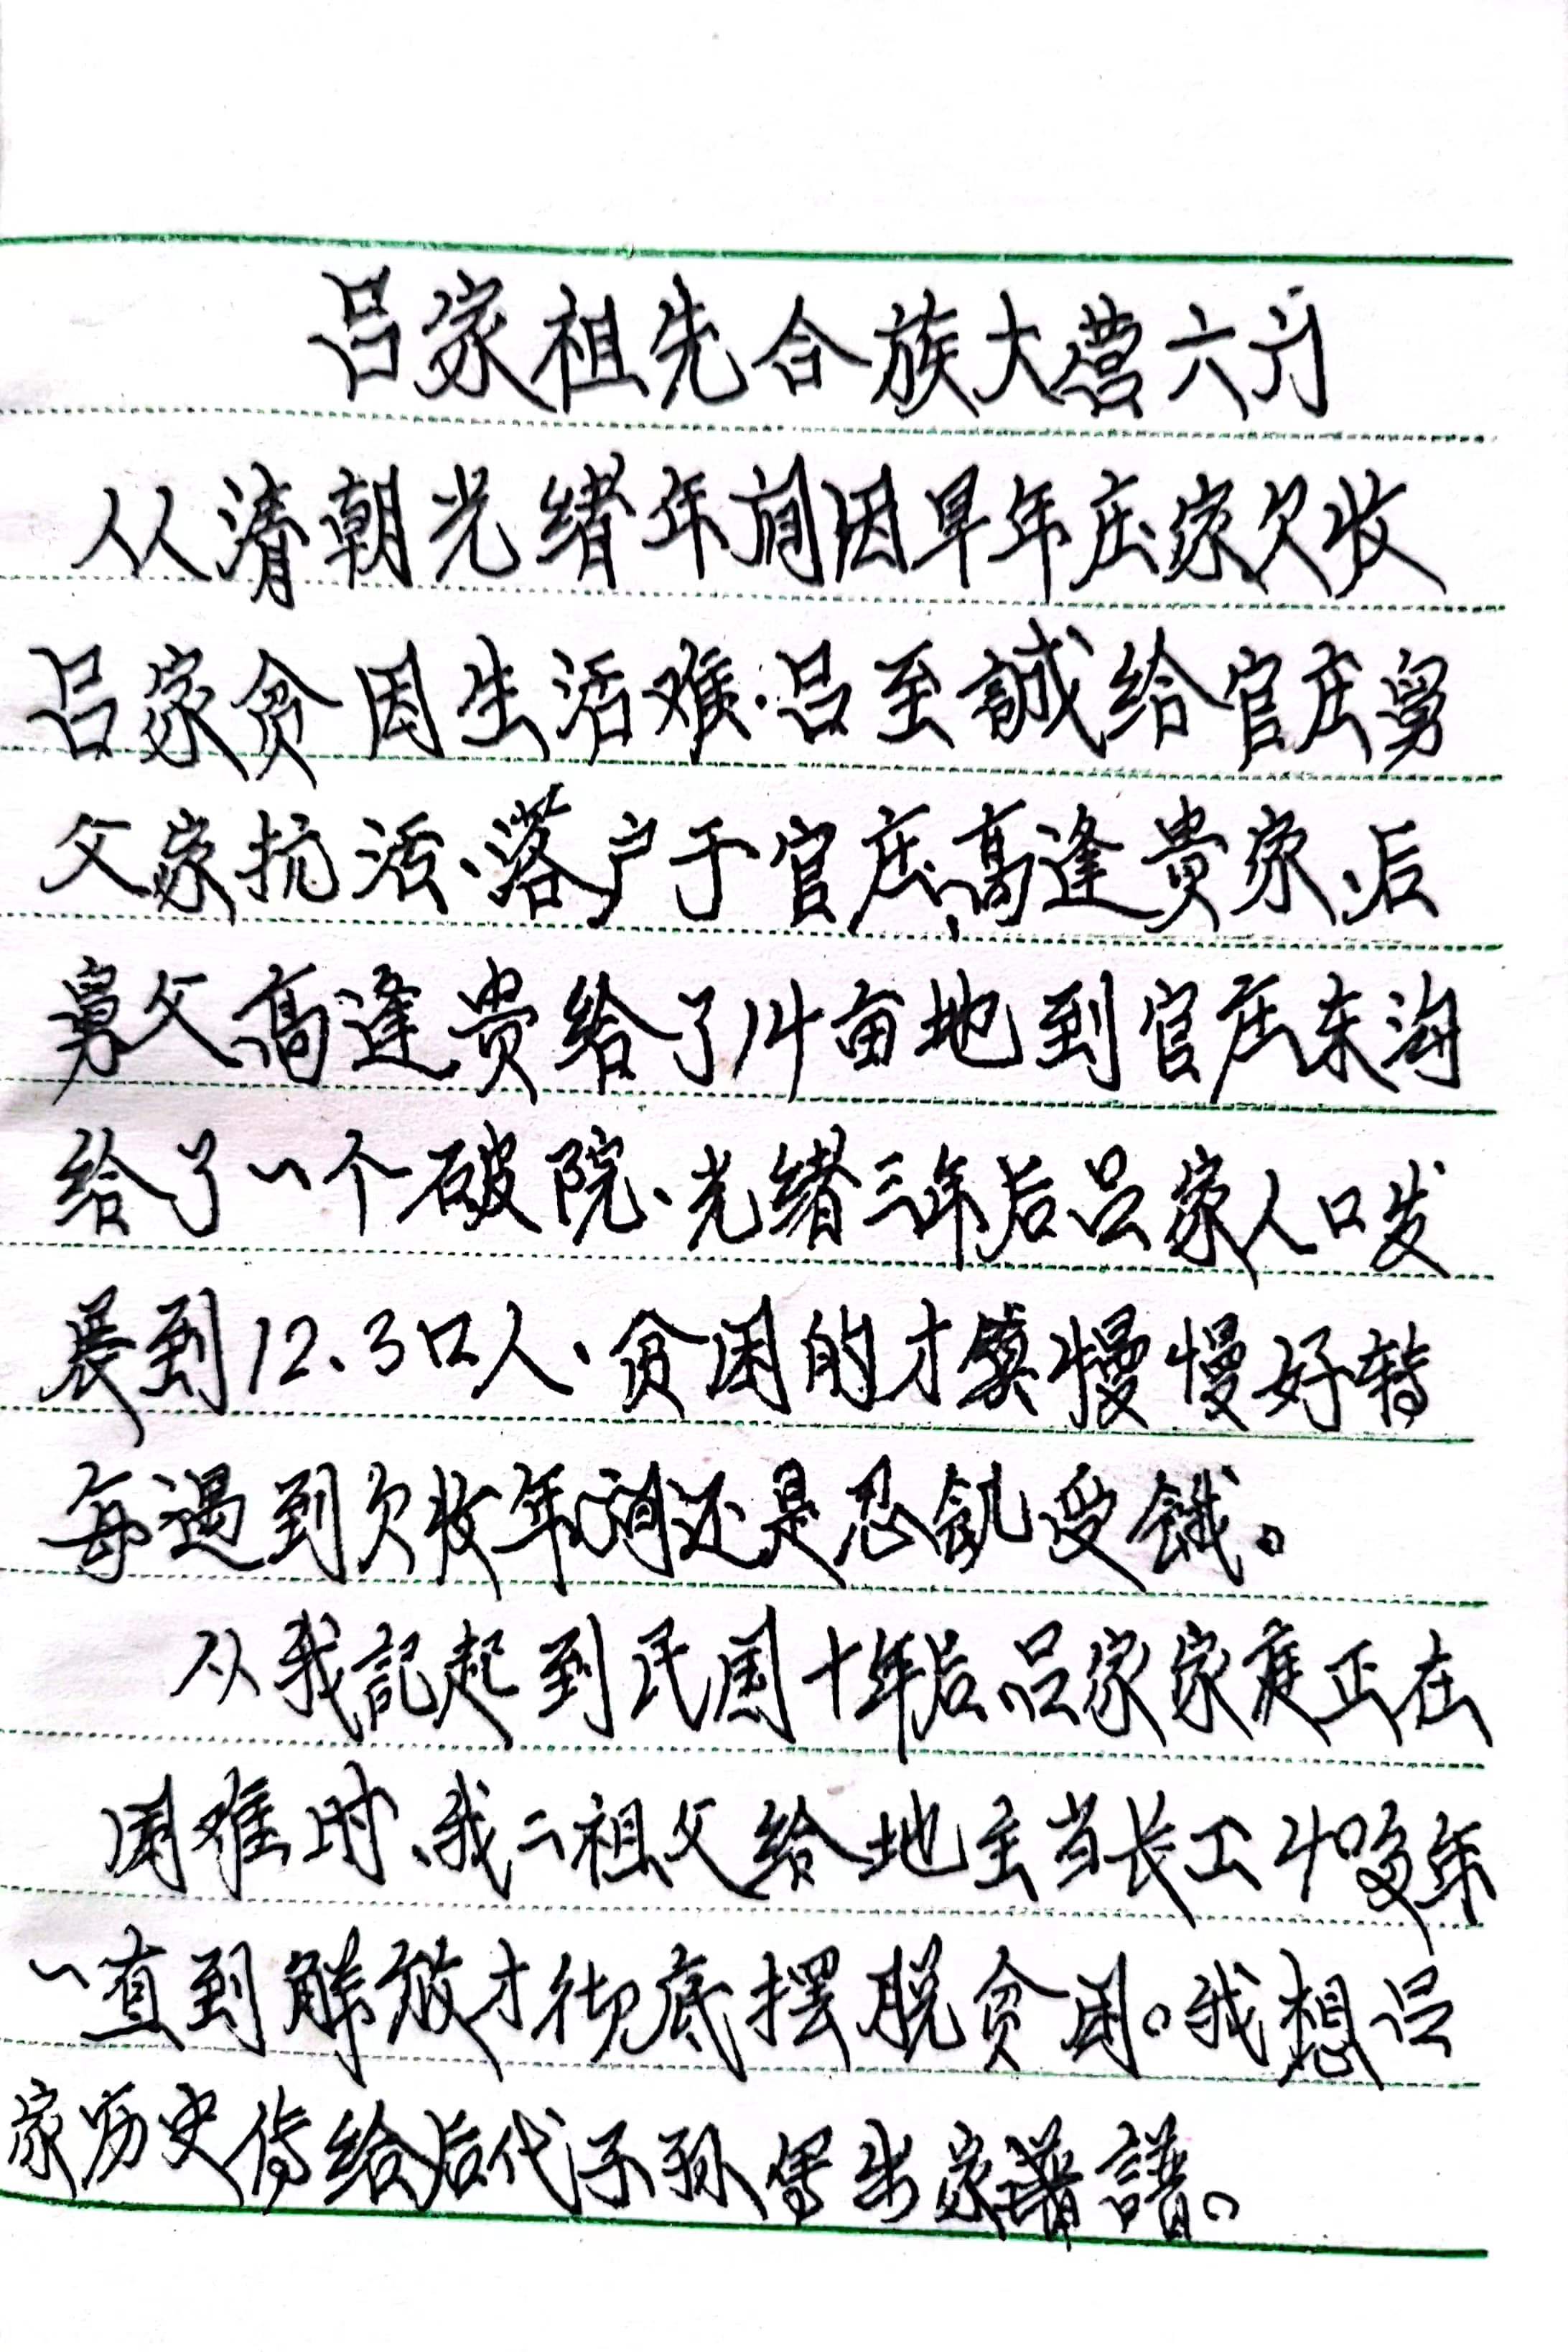 吕家祖先合族大营六门
从清朝光绪年间因旱年庄家欠收
吕家贫困生活难.吕至誠给官庄舅
父家抗活、落户于官庄、高逢贵家、后
舅父高逢贵给了14亩地到官庄东沟
给了一个破院、光绪三年后吕家人口发
展到12、3口人、贫困的才慢慢好转
每遇到欠收年间还是忍飢受餓。
从我記起到民国十年后、吕家家庭正在
困难时、我二祖父给地主当长工40多年
一直到解放才彻底摆脱贫困。我想吕
家历史传给后代子孙写出家譜。